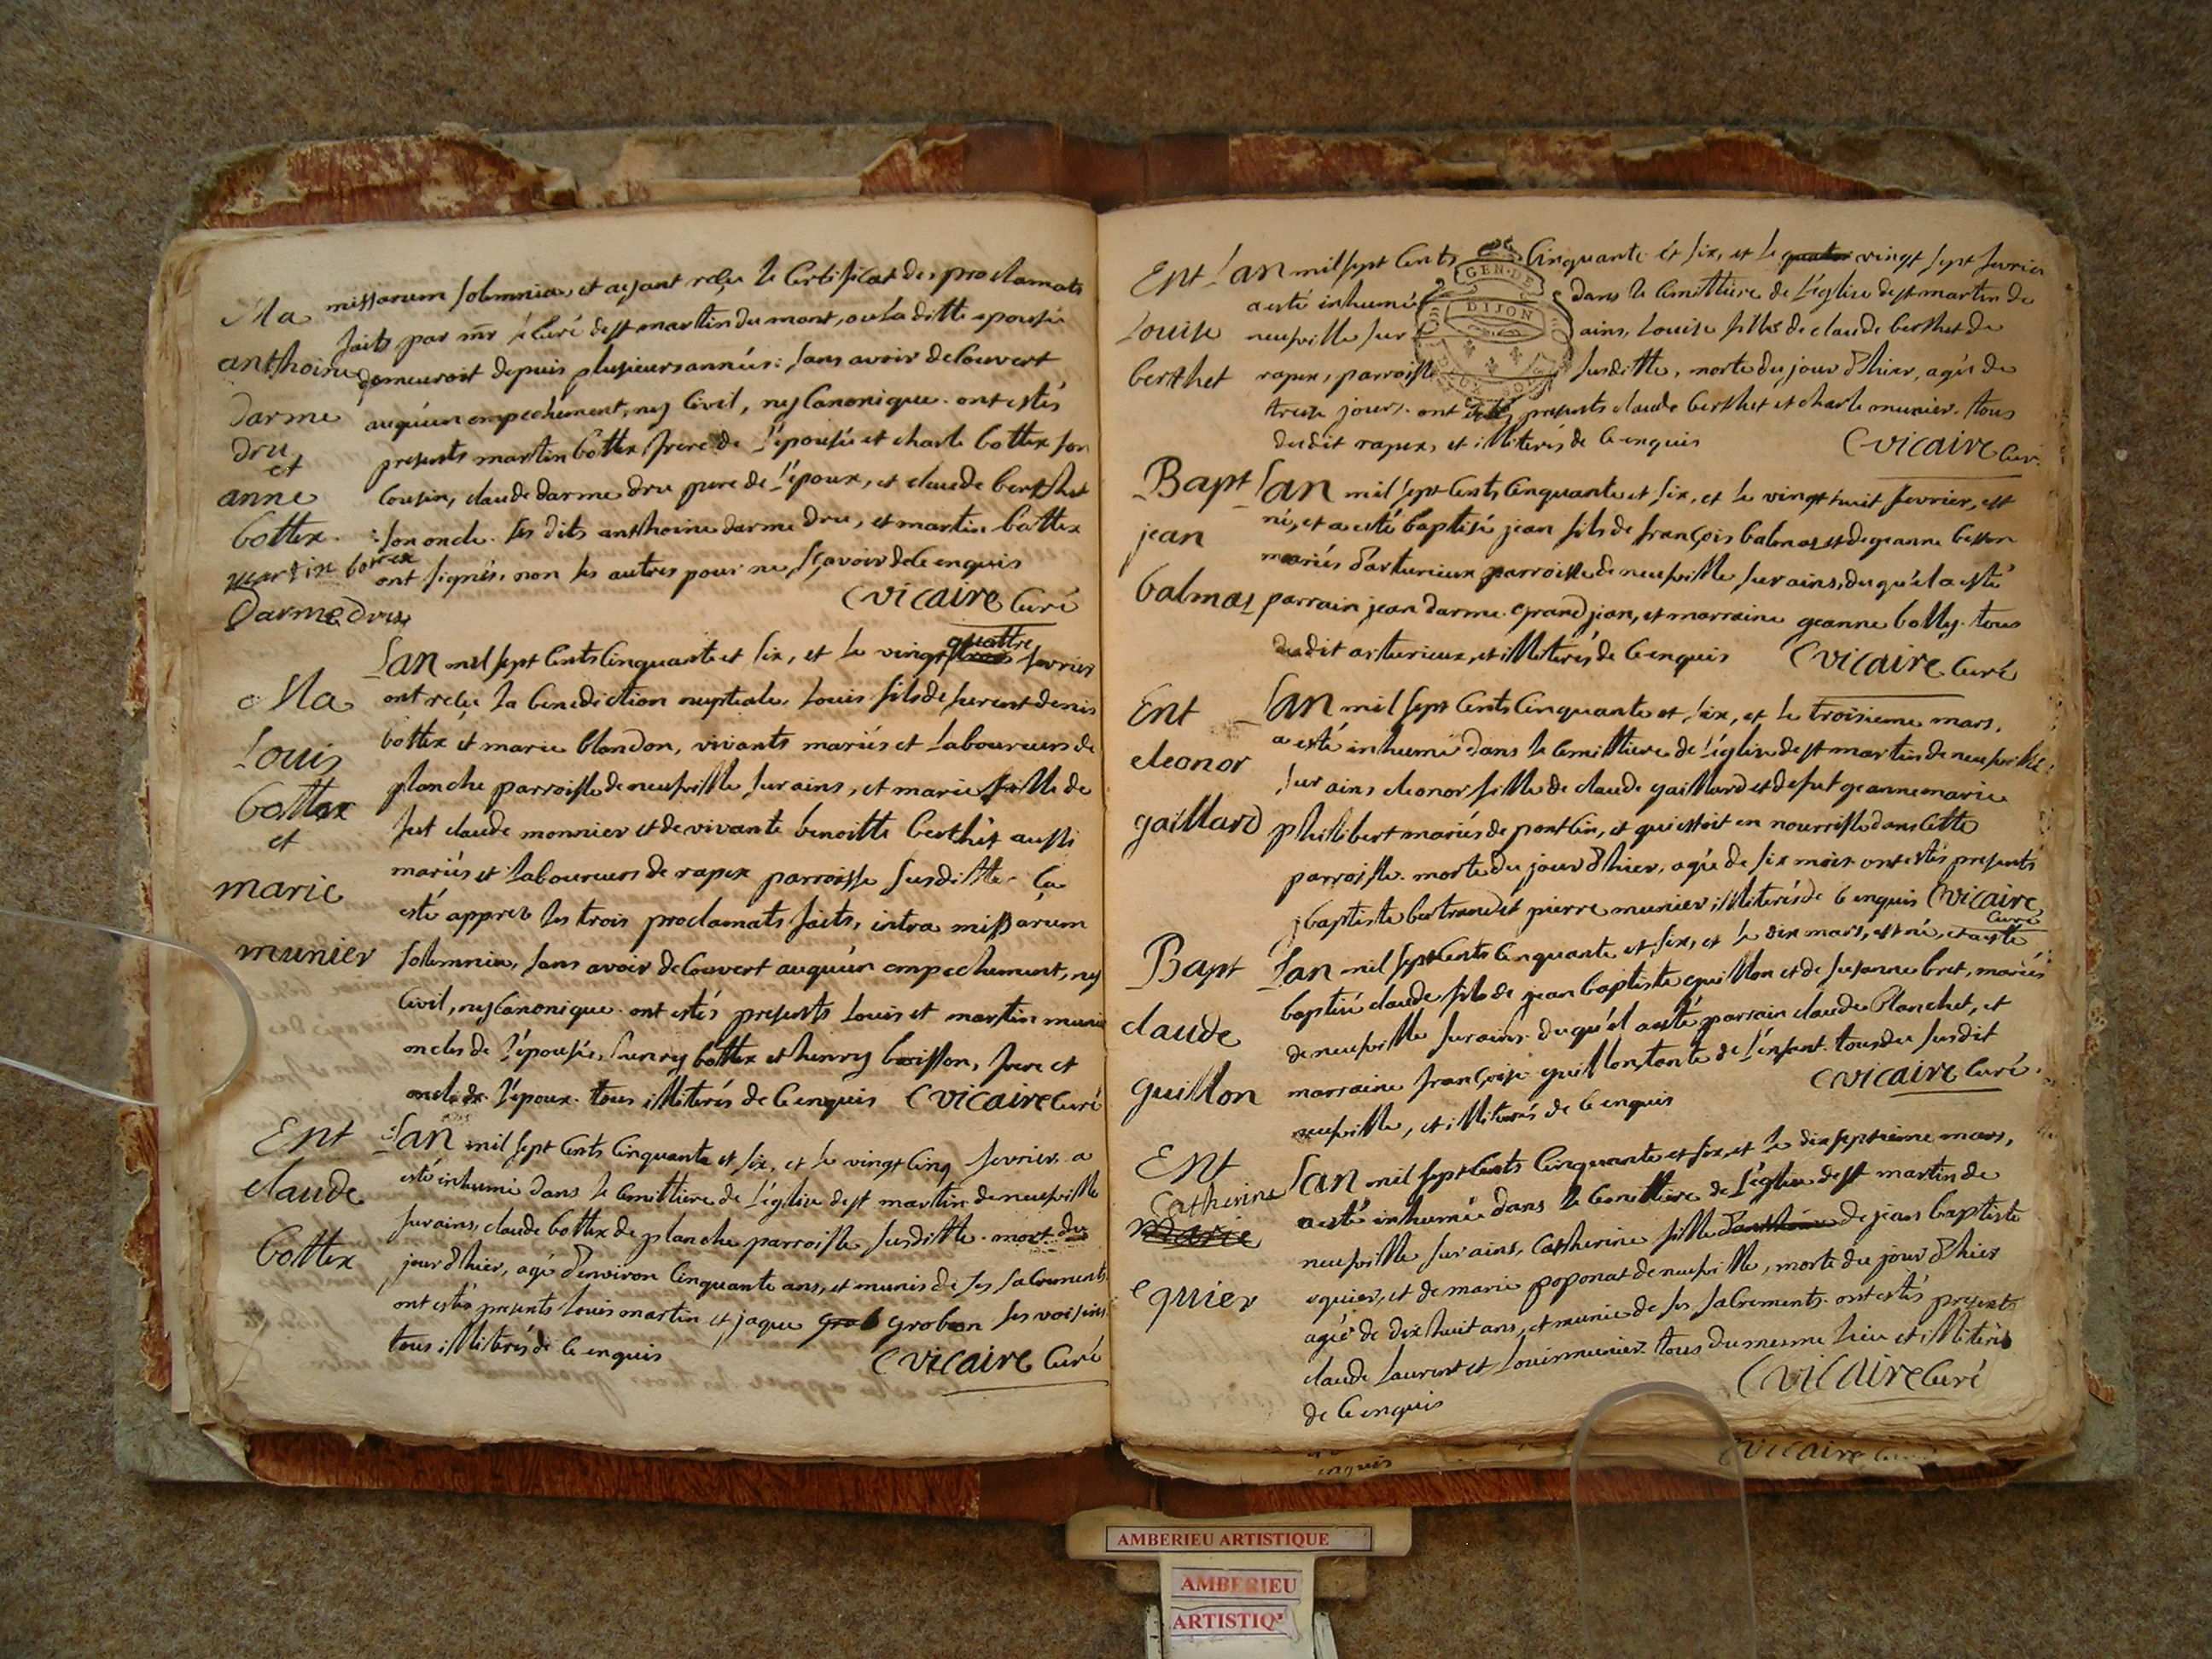 Ma
anthoine
darme
dru
et
anne
bottex
martin bottex
Darme dru
missarum solemnia, et ayant reçu le Certificat des proclamats
faits par mr le Curé de st martin du mont, ou la ditte epousée
demeuroit depuis plusieurs années: sans avoir decouvert
auqu'un empechement, ny Civil, ny Canonique. ont estés
presents martin bottex frere de l'épousée et charle bottex son
Cousin, claude darme dru pere de l'époux, et claude berthet
son oncle. les dits anthoine darme dru, et martin bottex
ont signés, non les autres pour ne sçavoir de ce enquis
Cvicaire Curé
Ma
Louis
bottex
et
marie
munier
Lan mil sept Cents Cinquante et six, et le vingt quattre fevrier
ont reçu la benediction nuptiale, Louis fils de furent denis
bottex et marie blondon, vivants mariés et Laboureurs de
planche parroisse de neufville sur ains, et marie fille de
fut claude monnier et de vivante benoitte berthet aussi
mariés et Laboureurs de rapex parroisse susditte. Ça
esté apprez les trois proclamats faits, intra missarum
solemnia, sans avoir decouvert auqu'un empechement, ny
Civil, ny Canonique. ont estés presents Louis et martin munier
oncles de l'épousée, henry bottex et henry boisson, frere et
oncle de l'époux. tous illiterés de ce enquis Cvicaire Curé
Ent
claude
bottex
Lan mil sept Cents Cinquante et six, et le vingt Cinq fevrier a
esté inhumé dans le Cemittiere de l'église de st martin de neufville
sur ains, claude bottex de planche parroisse susditte. mort du
jour d'hier, agé d'environ Cinquante ans, et munis de ses sacrements
ont estés presents Louis martin et jaque grob grobon ses voisins
tous illiterés de ce enquis
Cvicaire Curé
Ent
Louise
berthet
Lan mil sept Cents Cinquante et six, et le quator vingt sept fevrier
a esté inhumé dans le Cemittiere de l'église de st martin de
neufville sur ains, Louise fille de claude berthet de
rapex, parroisse susditte, morte du jour d'hier, agée de
treize jours. ont estés presents claude berthet et charle munier. tous
dudit rapex, et illiterés de ce enquis
Cvicaire Cur.
GEN. DE
DIJON
Bapt
jean
balmas
Lan mil sept Cents Cinquante et six, et le vingt huit fevrier, est
né, et a esté baptisé jean fils de françois balmas et de jeanne besson
mariés d'arturieux parroisse de neufville sur ains, duqu'el a esté
parrain jean darme grandjean, et marraine geanne bolly. tous
dudit arturieux, et illiterés de ce enquis
Cvicaire Curé
Ent
eleonor
gaillard
Lan mil sept Cents Cinquante et six, et le troisieme mars,
a esté inhumé dans le Cemittiere de l'église de st martin de neufville
sur ains eleonor fille de claude gaillard et de fut geanne marie
philibert mariés de pontcin, et qui estoit en nourrisse dans Cette
parroisse. morte du jour d'hier, agée de six mois ont estés presents
jbaptiste bertrand et pierre munier illiterés de ce enquis Cvicaire
Curé
Bapt
claude
guillon
Lan mil sept Cents Cinquante et six, et le dix mars, est né, et a esté
baptisé claude fils de jean baptiste guillon et de susanne bret, mariés
de neufville sur ains. duqu'el a esté parrain claude Planchet, et
marraine françoise guillon, tante de l'enfant. tous du susdit
neufville, et illiterés de ce enquis
Cvicaire Curé.
Ent
Catherine
Marie
eguier
Lan mil sept Cents Cinquante et six, et le dix septieme mars,
a esté inhumée dans le Cemittiere de l'église de st martin de
neufville sur ains, Catherine fille d'anthoine de jean baptiste
eguier, et de marie poponat de neufville, morte du jour d'hier
agée de dix huit ans, et munie de ses sacrements. ont estés presents
claude Laurent et Louis munier. tous du mesme lieu et illiterés
de ce enquis
Cvicaire Curé
enquis
Cvicaire
AMBERIEU ARTISTIQUE
AMBERIEU
ARTISTIQ